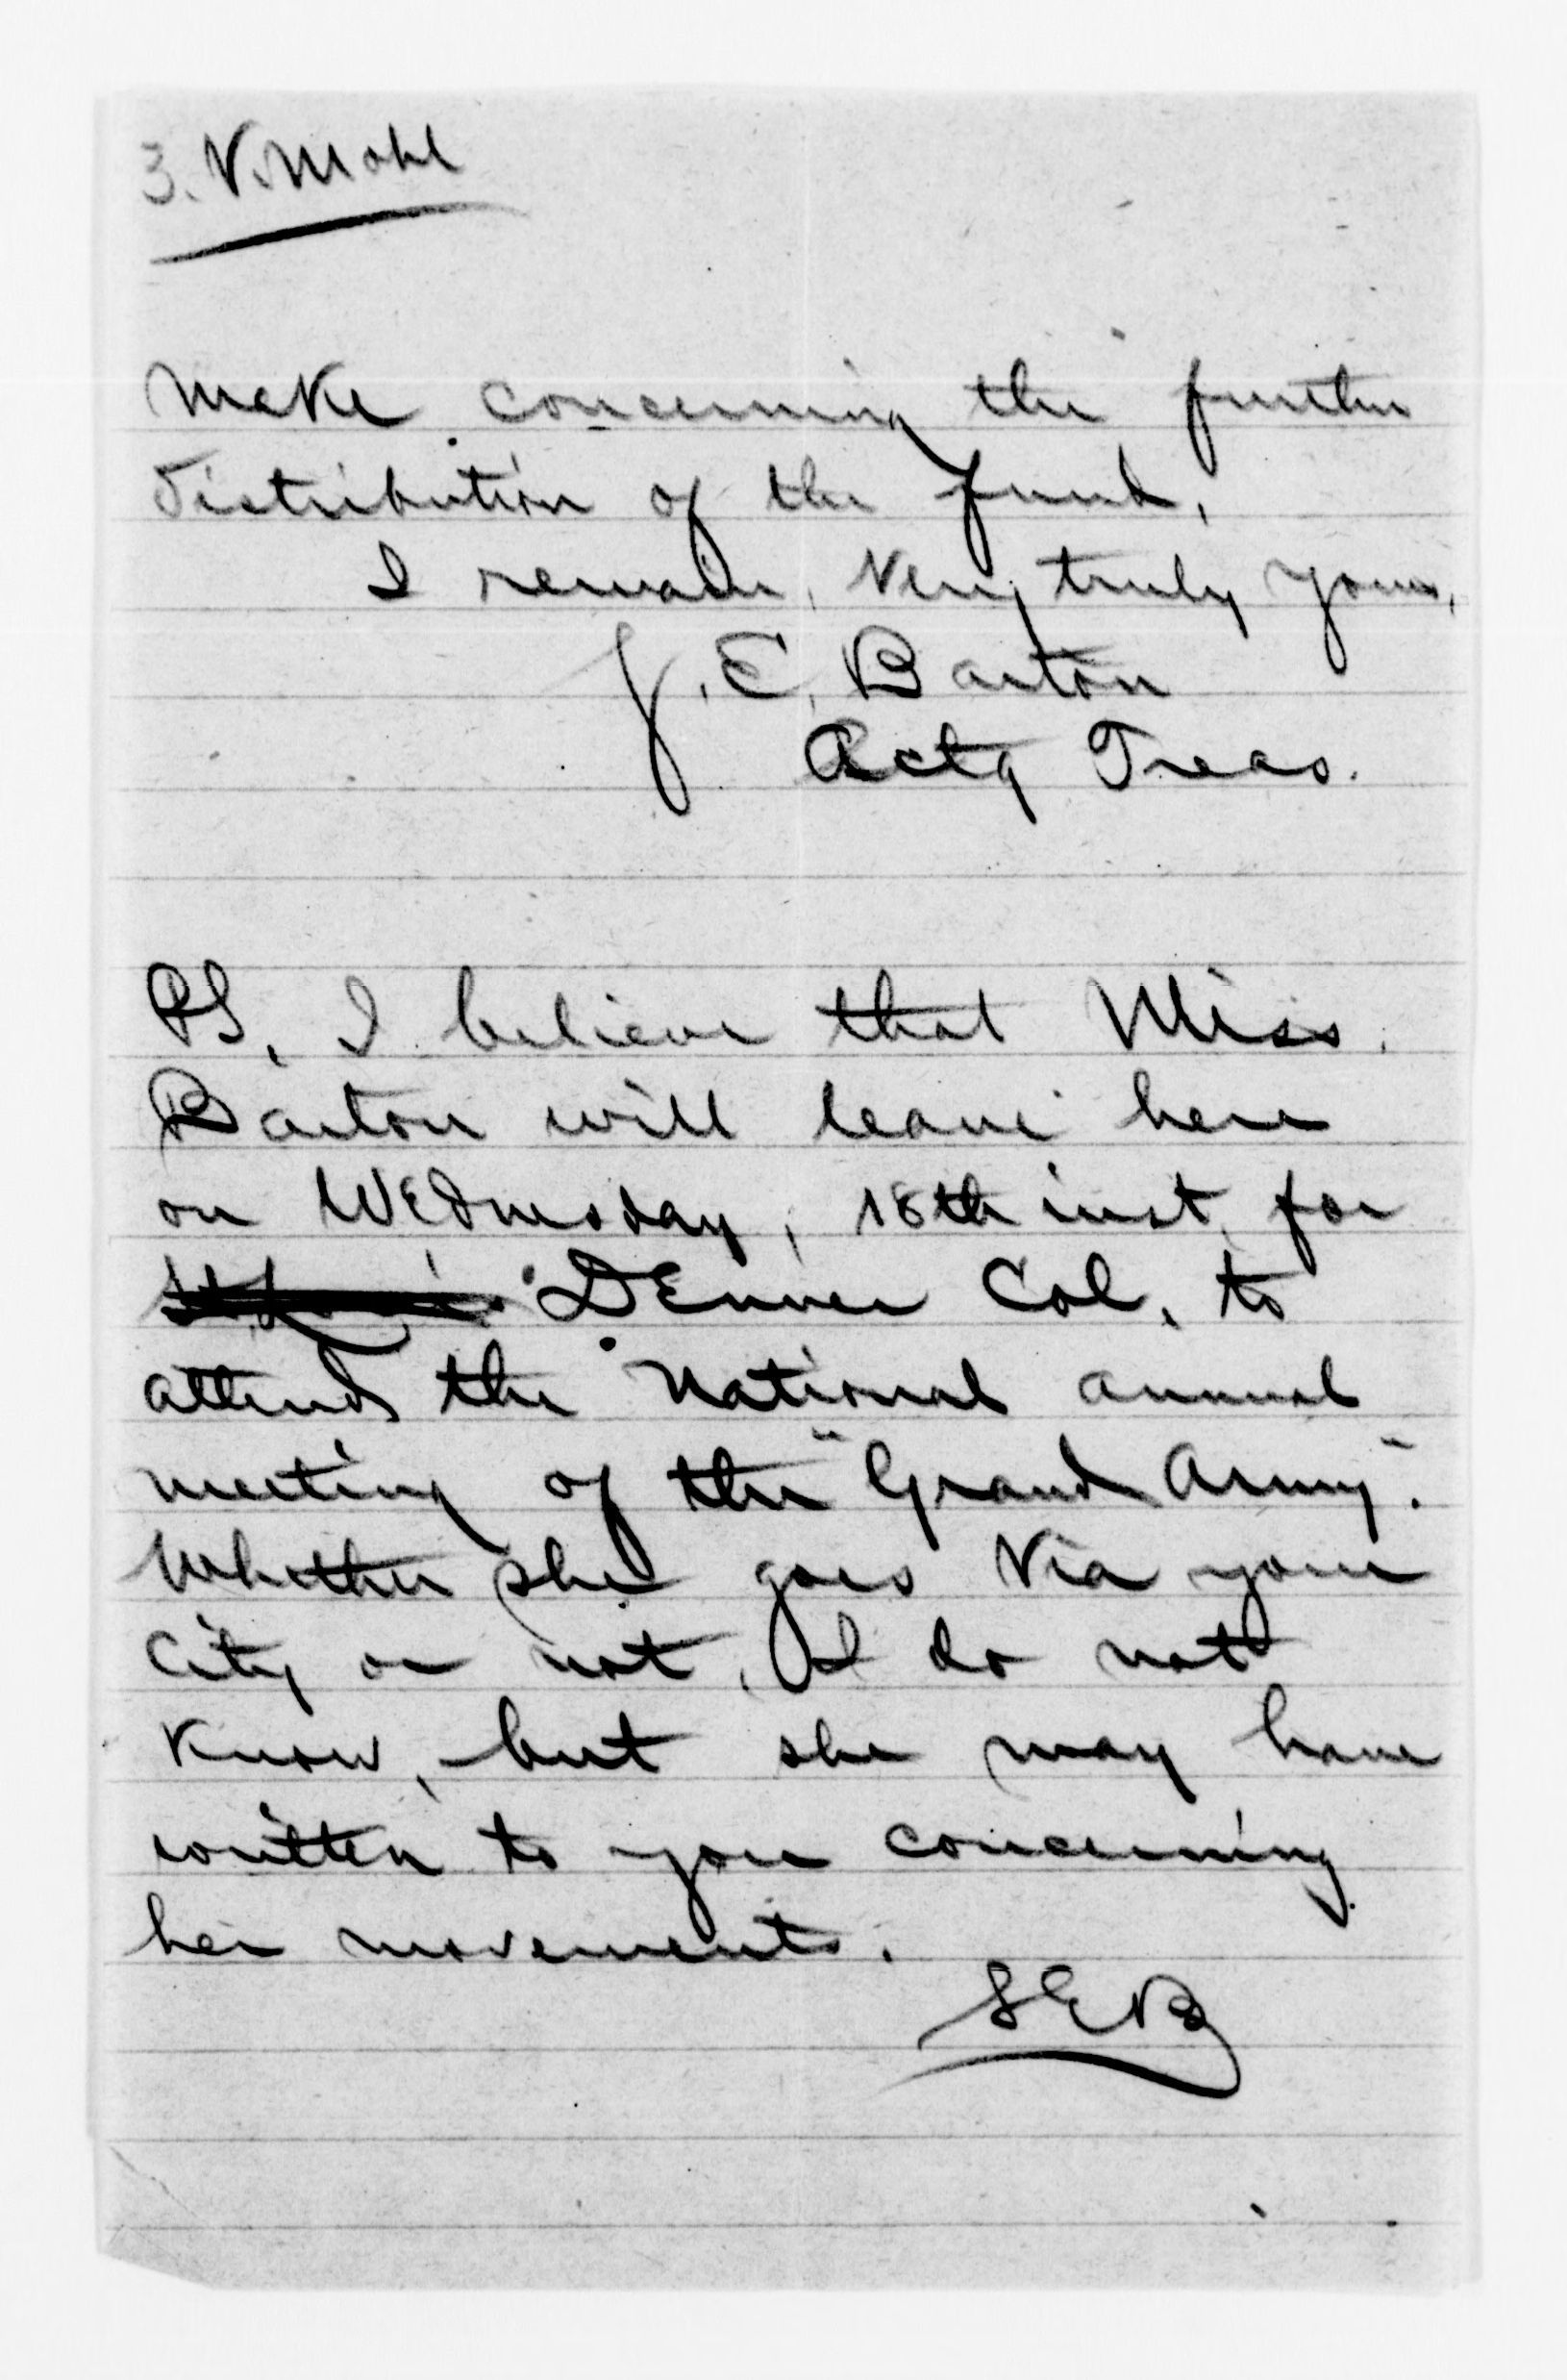 3. V. Mohl
make concerning the further
distribution of the fund,
I remain, Very truly yours,
S. E. Barton
Actg Treas.
PS, I believe that Miss.
Barton will leave here
on Wednesday, 18th inst, for
St. Louis Denver Col, to
attend the National annual
meeting of the "Grand Army".
Whether she goes via your
City or not, I do not
know, but she may have
written to you concerning
her movements.
SEB